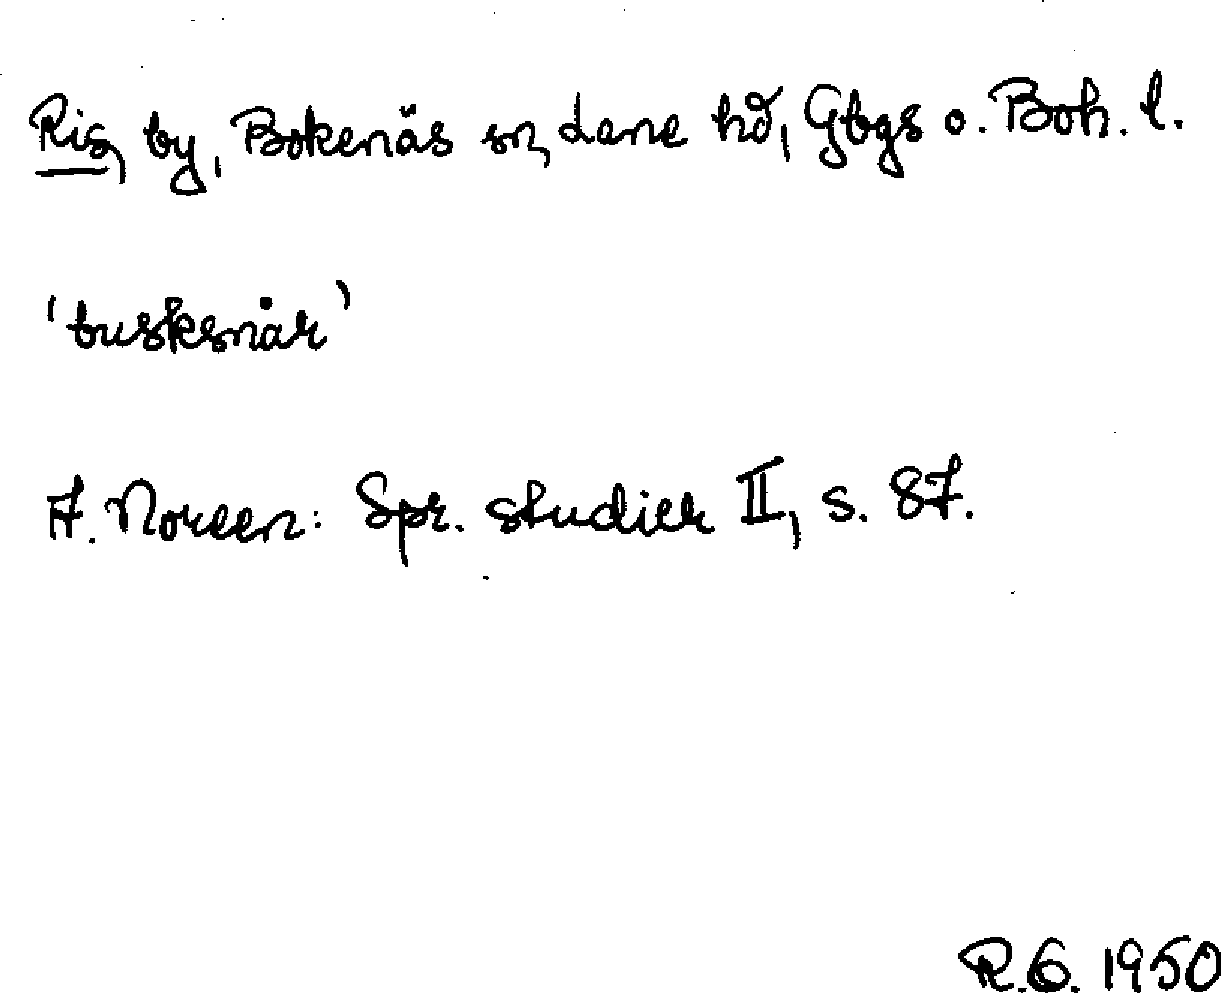 Ris, by, Bokenäs sn, Lane hd, Gbgs o. Boh. l.
'busksnår'
A. Noreen: Spr. studier II, s. 87.
R.G. 1950